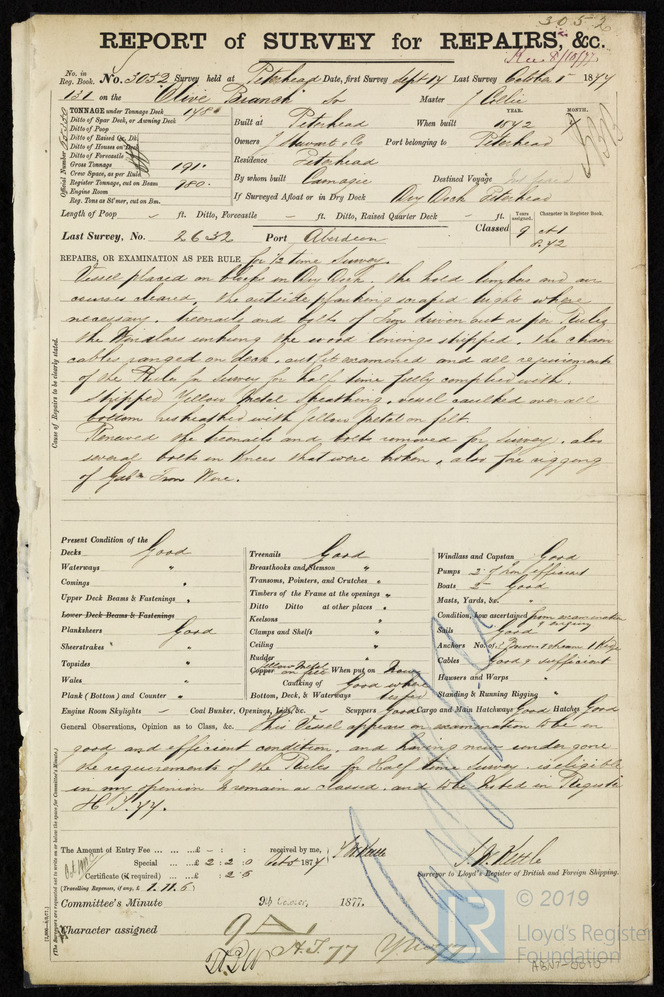 3052
REPORT of SURVEY for REPAIRS, &c.
Rec 8/10/77
No. in Reg. Book. No. 3052 Survey held at Peterhead Date, first Survey Sept 14 Last Survey October 1st 1877
131 on the "Olive Branch" Master J Collie
TONNAGE under Tonnage Deck
Ditto of Spar Deck, or Awning Deck
Ditto of Poop
Ditto of Raised Qr. Dk.
Ditto of Houses on Dk.
Ditto of Forecastle
Gross Tonnage 191.
Crew Space, as per Rule
Register Tonnage, cut on Beam
Engine Room
Reg. Tons as St'mer, cut on Bm.
Official Number
Built at Peterhead When built YEAR. MONTH.
Owners J Stewart & Co Port belonging to Peterhead
Residence Peterhead
By whom built Destined Voyage
If Surveyed Afloat or in Dry Dock Dry Dock Peterhead
Length of Poop – ft. Ditto, Forecastle – ft. Ditto, Raised Quarter Deck – ft.
Years assigned. Character in Register Book.
Last Survey, No. 2632 Port Aberdeen Classed 9 A1
REPAIRS, OR EXAMINATION AS PER RULE for ½ time Survey.
Cause of Repairs to be clearly stated.
Vessel placed on blocks in Dry Dock. the hold limbers and air
courses cleared, the outside planking scraped bright where
necessary, treenails and bolts of Iron driven out as per Rules
the Windlass unhung the wood linings stripped, the chain
cables ranged on deck, examined and all requirements
of the Rules for Survey for half time fully complied with.
Stripped Yellow Metal Sheathing, vessel caulked over all
bottom resheathed with Yellow Metal on felt.
Renewed the treenails and bolts removed for survey, also
several bolts in Knees that were broken, also fore rigging
of Galv Iron Wire.
Present Condition of the
Decks Good
Waterways "
Comings "
Upper Deck Beams & Fastenings "
Lower Deck Beams & Fastenings
Planksheers Good
Sheerstrakes "
Topsides "
Wales "
Plank (Bottom) and Counter "
Engine Room Skylights –
Treenails Good
Breasthooks and Stemson "
Transoms, Pointers, and Crutches "
Timbers of the Frame at the openings "
Ditto Ditto at other places "
Keelsons "
Clamps and Shelfs "
Ceiling "
Rudder "
Copper Yellow Metal on felt When put on Now
Caulking of Bottom, Deck, & Waterways Good where
Coal Bunker, Openings, Lids, &c. – Scuppers Good Cargo and Main Hatchways Good Hatches Good
Windlass and Capstan Good
Pumps 2 of Iron efficient
Boats 2 Good
Masts, Yards, &c.
Condition, how ascertained from examination
Sails Good
Anchors No. of
Cables Good & sufficient
Hawsers and Warps "
Standing & Running Rigging "
General Observations, Opinion as to Class, &c. This Vessel appears on examination to be in
good and efficient condition, and having now undergone
the requirements of the Rules for Half time Survey is eligible
in my opinion to remain as classed, and to be noted in Register
H T. 77.
The Amount of Entry Fee £ – : : received by me,
Special £ 2 : 2 : 0 Oct 8 1877
Certificate (if required) : 2 6
(Travelling Expenses, if any, £ 1. 11. 6)
Surveyor to Lloyd's Register of British and Foreign Shipping.
Committee's Minute 9th October, 1877.
Character assigned 9 A
H.T. 77
© 2019
LR
Lloyd's Register
Foundation